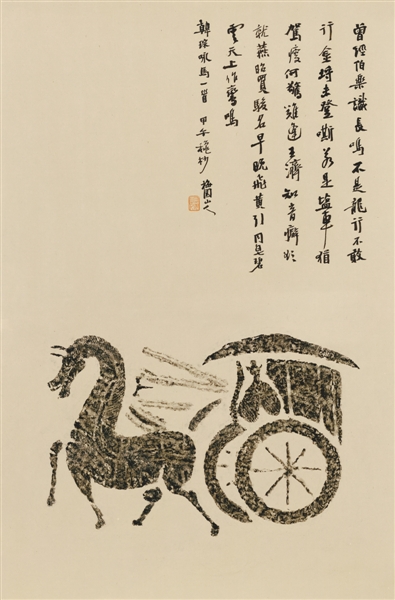 曾經伯樂識長鳴不是龍行不敢
行金埒未登嘶若是鹽車猶
駕瘦何驚難逢王濟知音癖欲
就燕昭買駿名早晚飛黃引同皂碧
雲天上作鸞鳴
韓琮詠馬一首 甲午穐杪 山人